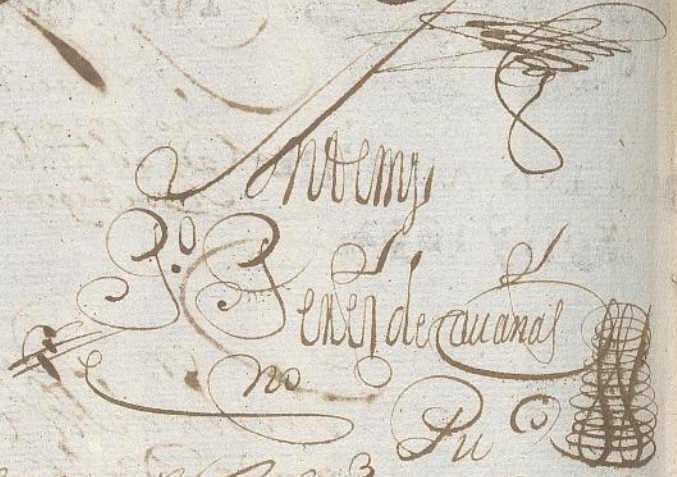 Antemj
Po Perez de Cauanas
no
Puco